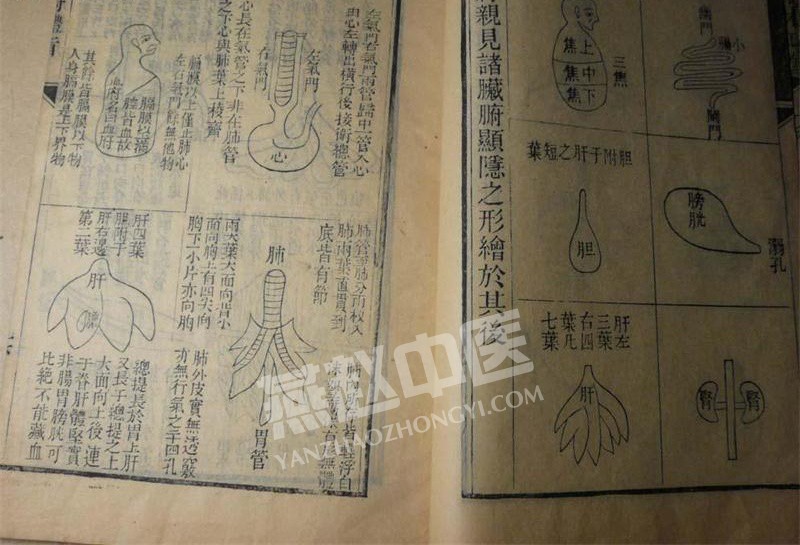 幽門
小腸
闌門
三焦
上焦
中焦
下焦
膀胱
溺孔
胆附于肝之短葉
胆
腎
腎
肝左
三葉
右四
葉凡
七葉
肝
親見諸臟腑顯隱之形繪於其後
左氣門右氣門兩管歸中一管入心
由心左轉出橫行後接衛總管
左氣門
右氣門
心
心長在氣管之下非在肺管
之下心與肺葉上稜齊
膈膜以上僅止肺心
左右氣門餘無他物
膈膜以上滿
腔皆血故
名曰血府
其餘皆膈膜以下物
人身膈膜是上下界物
肺管至肺分兩杈入
肺兩葉直貫到
底皆有節
肺
胃管
肺外皮實無透竅
亦無行氣之二十四孔
兩大葉大面向背小
面向胸上有四尖向
胸下一小片亦向胸
肝四葉
胆附于
肝右邊
第二葉
肝
胆
總提長於胃上肝
又長于總提之上
大面向上後連
于脊肝體堅實
非腸胃膀胱可
比絕不能藏血
燕赵中医
YANZHAOZHONGYI.COM